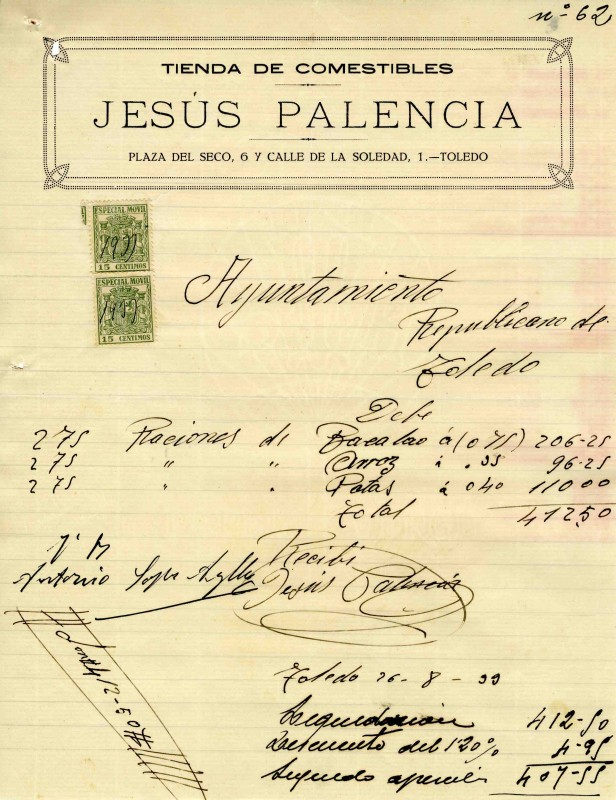 nº 62
TIENDA DE COMESTIBLES
JESÚS PALENCIA
PLAZA DEL SECO, 6 Y CALLE DE LA SOLEDAD, 1.—TOLEDO
ESPECIAL MOVIL
15 CENTIMOS
ESPECIAL MOVIL
15 CENTIMOS
Ayuntamiento
Republicano de
Toledo
Debe
275 Raciones de Bacalao á (075) 206-25
275 " " Arroz á .35 96-25
275 " " Patas á 040 11000
Total 412,50
Recibí
Antonio
Jesús Palencia
Toledo 26-8-33
Liquidación 412-50
Descuento del 1'20% 4-95
407-55